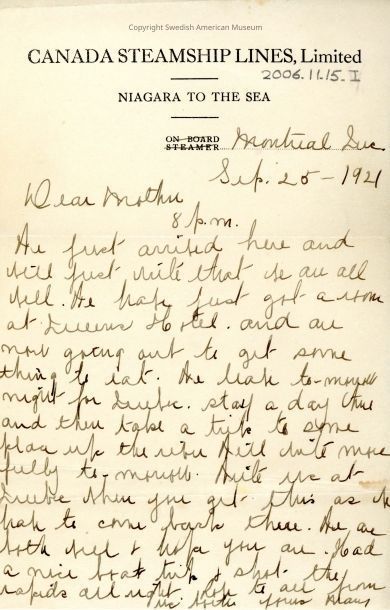 Copyright Swedish American Museum
CANADA STEAMSHIP LINES, Limited
2006.11.15.I
NIAGARA TO THE SEA
ON BOARD
STEAMER Montreal Que
Sep. 25 - 1921
Dear Mother
8 p.m.
We just arrived here and
will just write that we are all
well. We have just got a room
at Queens Hotel. and are
now going out to get some
thing to eat. We leave to-morrow
night for Quebec. stay a day there
and then take a trip to some
place up the river Will write more
fully to-morrow. Write us at
Quebec when you get this as we
have to come back there. We are
both well & hope you are. Had
a nice boat trip & shot the
rapids all right. love to all from
us both yours